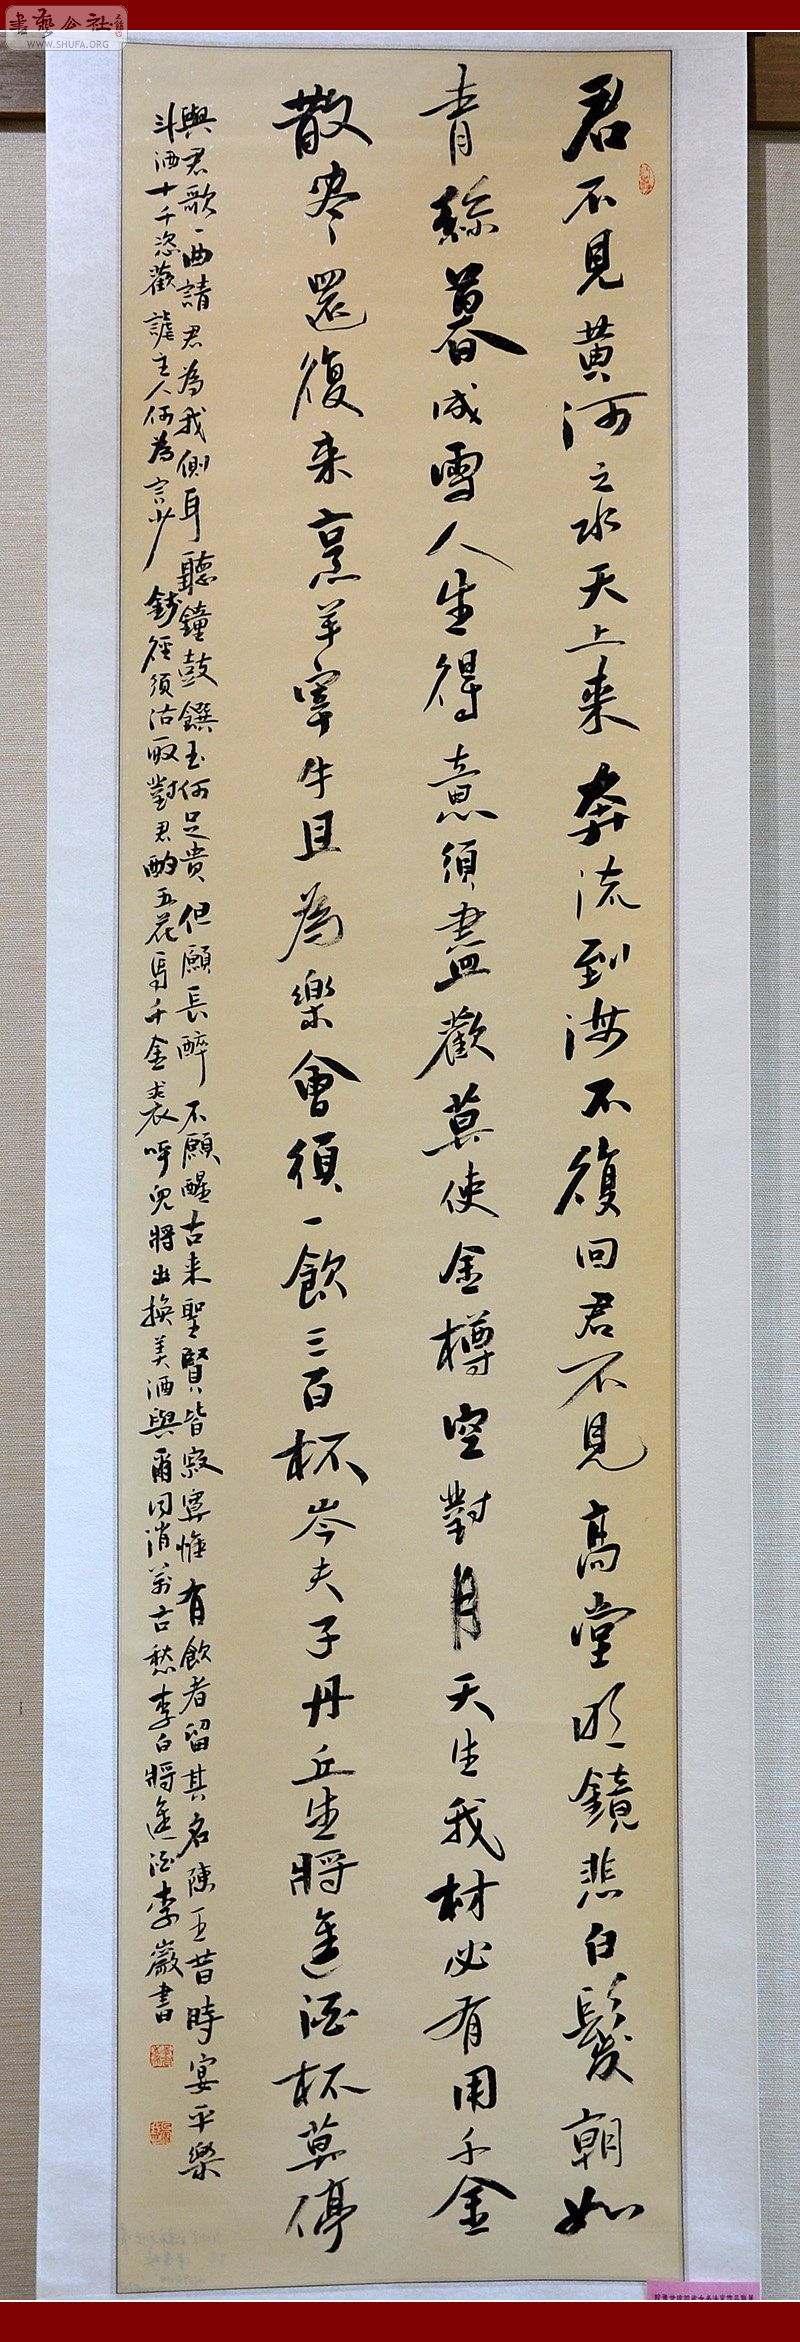 書藝公社
WWW.SHUFA.ORG
君不見黃河之水天上来奔流到海不復回君不見高堂明鏡悲白髮朝如
青絲暮成雪人生得意須盡歡莫使金樽空對月天生我材必有用千金
散盡還復来烹羊宰牛且為樂會須一飲三百杯岑夫子丹丘生將進酒杯莫停
與君歌一曲請君為我側耳聽鐘鼓饌玉何足貴但願長醉不願醒古来聖賢皆寂寞惟有飲者留其名陳王昔時宴平樂
斗酒十千恣歡謔主人何為言少錢徑須沽取對君酌五花馬千金裘呼兒將出換美酒與爾同消萬古愁李白將進酒李書